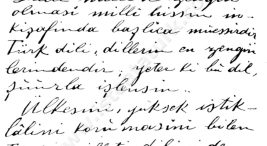 olması millî hissin in-
kişafında başlıca müessirdir.
Türk dili, dillerin en zengin
lerindendir; yeter ki bu dil,
şuurla işlensin.
Ülkesini, yüksek istik-
lâlini korumasını bilen